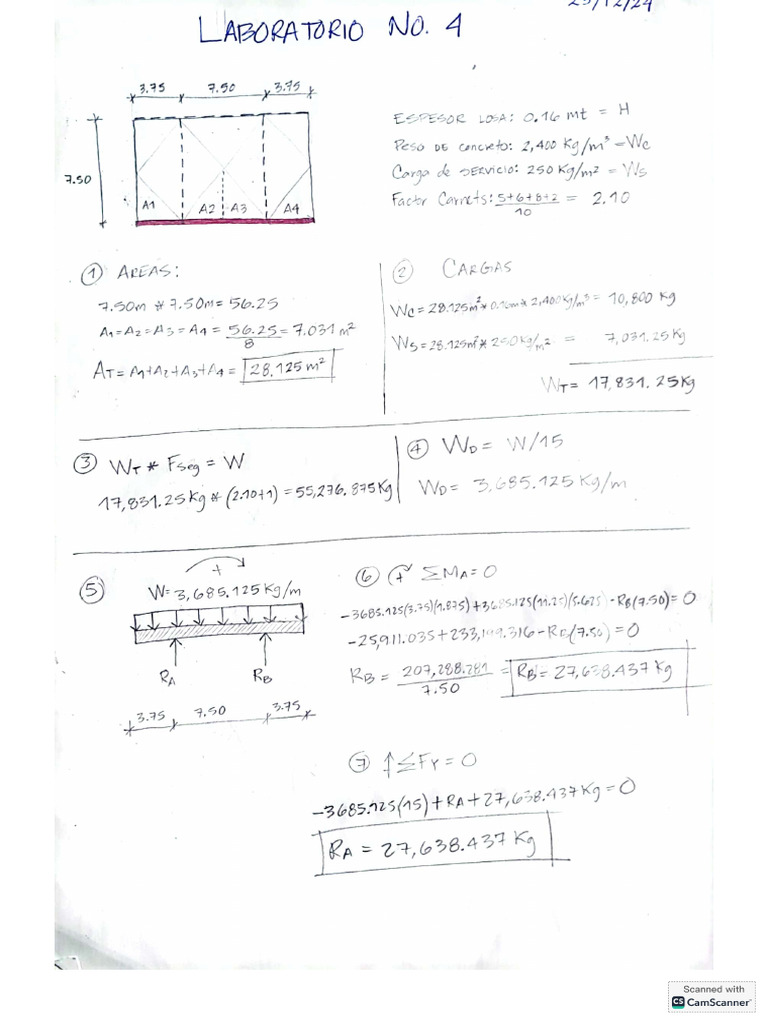 23/12/24
LABORATORIO NO. 4
3.75 7.50 3.75
7.50
A1 A2 A3 A4
ESPESOR LOSA: 0.16 mt = H
Peso DE concreto: 2,400 Kg/m³ = Wc
Carga de SERVICIO: 250 Kg/m² = Ws
Factor Carnets: 5+6+8+2/10 = 2.10
① AREAS:
7.50m * 7.50m = 56.25
A1=A2=A3=A4= 56.25/8 = 7.031 m²
AT= A1+A2+A3+A4 = 28.125 m²
② CARGAS
Wc = 28.125m² * 0.16m * 2,400Kg/m³ = 10,800 Kg
Ws = 28.125m² * 250Kg/m² = 7,031.25Kg
WT= 17,831.25Kg
③ WT * Fseg = W
17,831.25Kg * (2.10+1) = 55,276.875Kg
④ WD = W/15
WD= 3,685.125 Kg/m
⑤
+
W= 3,685.125 Kg/m
RA RB
3.75 7.50 3.75
⑥ + ΣMA=0
-3685.125(3.75)(1.875)+3685.125(11.25)(5.625)-RB(7.50)=0
-25,911.035+233,199.316-RB(7.50)=0
RB = 207,288.281/7.50 = RB= 27,638.437 Kg
⑦ ↑ΣFY=0
-3685.125(15)+RA+27,638.437Kg=0
RA = 27,638.437 Kg
Scanned with
CS CamScanner